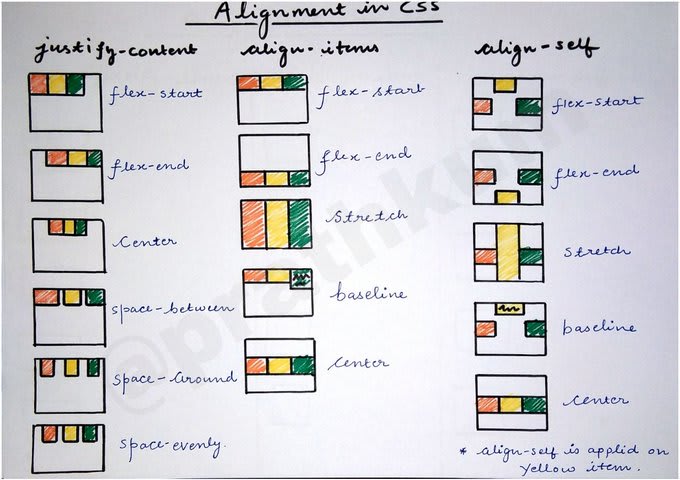 Alignment in CSS
justify-content
flex-start
flex-end
Center
space-between
Space-Ground
Space-evenly.
align-items
flex-start
flex-end
Stretch
baseline
Center
align-self
flex-start
flex-end
Stretch
baseline
Center
* align-self is applid on
Yellow item.